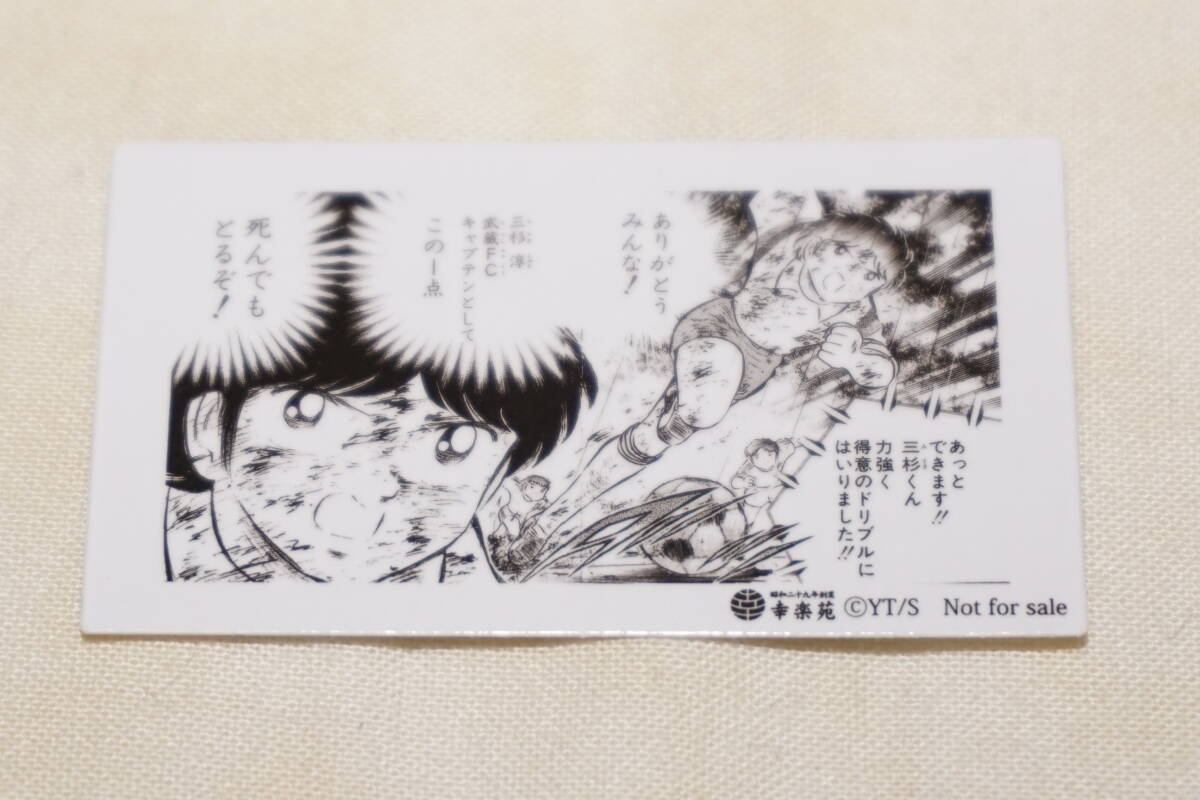 ありがとう
みんな!
三杉 淳
武蔵FC
キャプテンとして
この一点
死んでも
とるぞ!
あっと
できます!!
三杉くん
力強く
得意のドリブルに
はいりました!!
昭和二十九年創業
幸楽苑 ©YT/S Not for sale